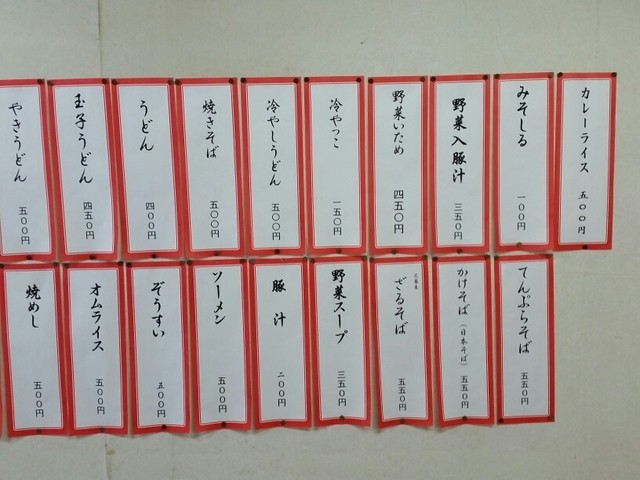 カレーライス 五〇〇円
みそしる 一〇〇円
野菜入豚汁 三五〇円
野菜いため 四五〇円
冷やっこ 一五〇円
冷やしうどん 五〇〇円
焼きそば 五〇〇円
うどん 四〇〇円
玉子うどん 四五〇円
やきうどん 五〇〇円
てんぷらそば 五五〇円
かけそば（日本そば） 五五〇円
ざるそば 五五〇円
野菜スープ 三五〇円
豚汁 二〇〇円
ソーメン 五〇〇円
ぞうすい 五〇〇円
オムライス 五〇〇円
焼めし 五〇〇円